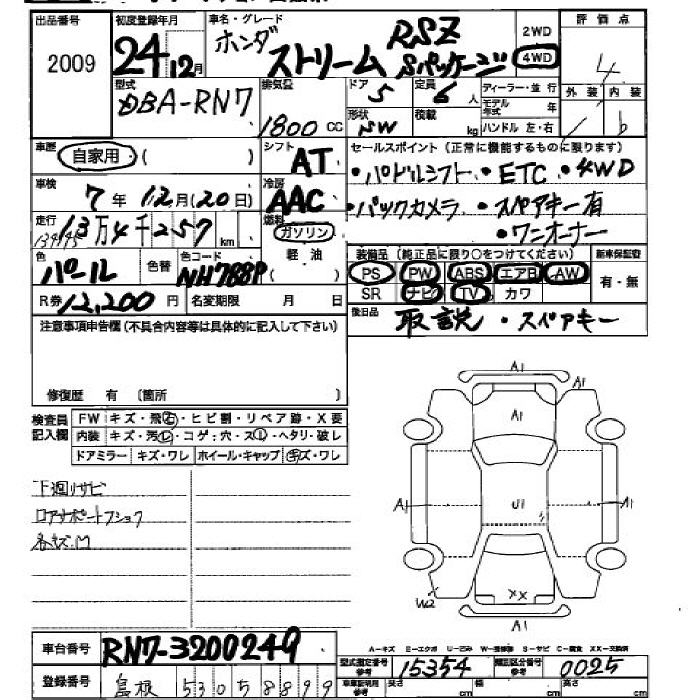 出品番号 初度登録年月 車名・グレード 評価点
2009 24年12月 ホンダ ストリーム RSZ Sパッケージ 2WD 4WD 4
型式 排気量 ドア 定員 ディーラー・並行 外装 内装
DBA-RN7 1800cc 5 6人 モデル年式 年
形状 積載 ハンドル 左・右
SW kg b
車歴 自家用 ( ) シフト AT セールスポイント(正常に機能するものに限ります)
・パドルシフト ・ETC ・4WD
車検 7年12月(20日) 冷房 AAC ・バックカメラ ・スペアキー有
・ワンオーナー
走行 13万4千257km 燃料 ガソリン 軽油
134195
装備品(純正品に限り○をつけてください) 新車保証書
PS PW ABS エアB AW 有・無
色 パール 色替 色コード NH788P SR ナビ TV カワ
R券 12,200円 名変期限 月 日 後日品 取説・スペアキー
注意事項申告欄(不具合内容等は具体的に記入して下さい)
修復歴 有 〔箇所 〕
検査員記入欄 FW キズ・飛石・ヒビ割・リペア跡・X要
内装 キズ・汚レ・コゲ・穴・スレ・ヘタリ・破レ
ドアミラー キズ・ワレ ホイール・キャップ キズ・ワレ
下廻りサビ
コアサポートプショウ
各キズ凹
A1
A1
A1
A1 U1 A1
XX
W2
A1
A-キズ E-エクボ U-凹み W-補修跡 S-サビ C-腐食 XX-交換済
車台番号 RN7-3200249 型式指定番号 参考 15354 類別区分番号 参考 0025
登録番号 島根 530 5 8899 車庫証明用 参考 長さ cm 幅 cm 高さ cm